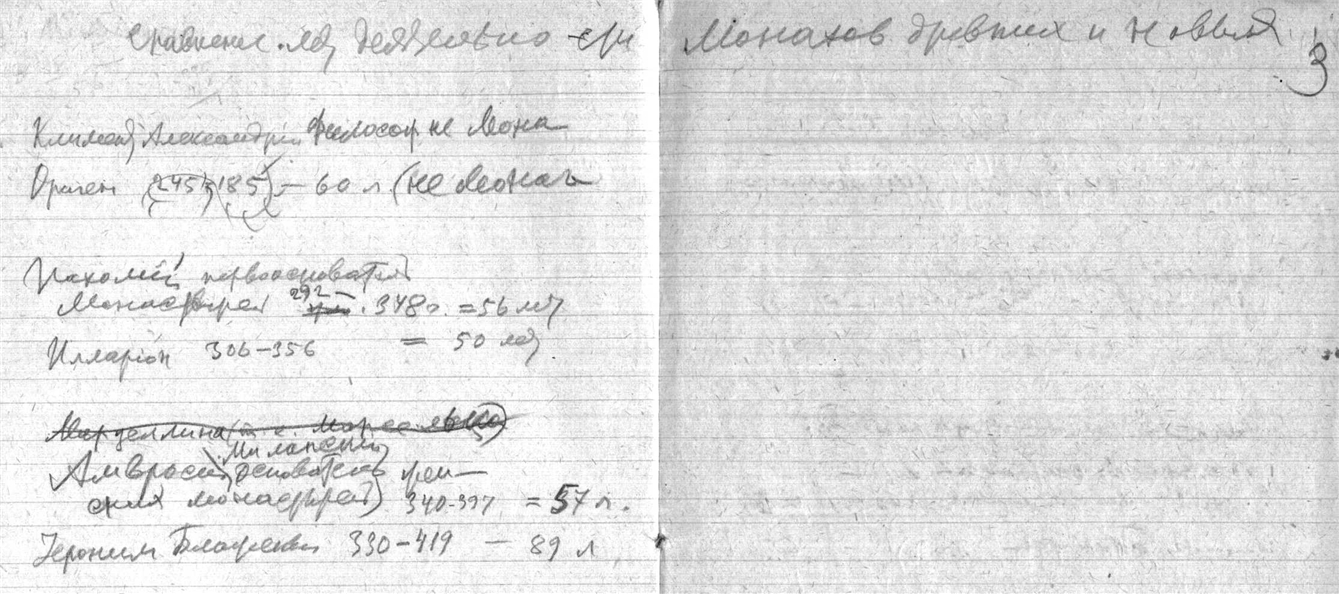 Сравнение лет деятельно-сти Монахов древних и новых
3
Климент Александри Философ не Мона
Ориген (245) (185) – 60 л. (не Монах
Пахомий первооснователь
Монастырей 292 – 348 г. = 56 лет
Илларион 306–356 = 50 лет
Марцеллина
Миланский
Амвросий основатель
монастырей) 340–397 = 57 л.
Иероним Блаженный 330–419 – 89 л